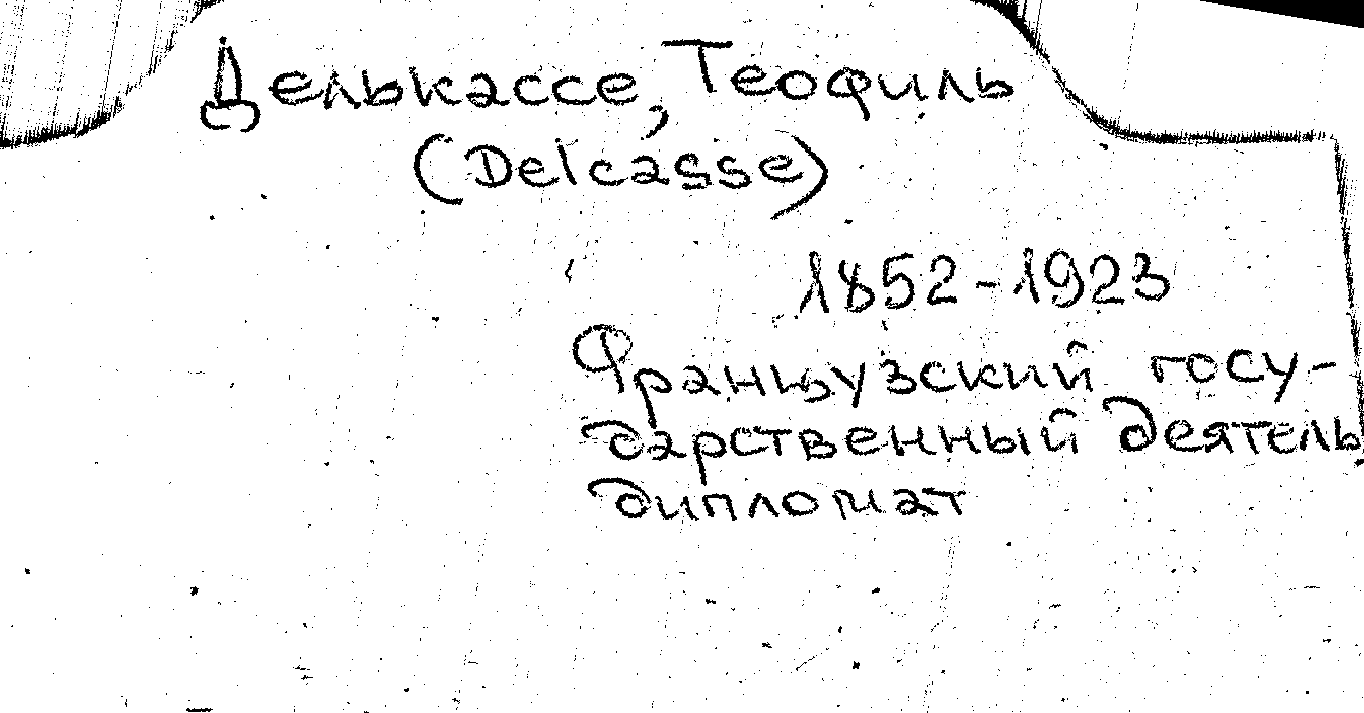 Делькассе, Теофиль
(Delcasse)
1852-1923
Французский госу-
дарственный деятель
дипломат